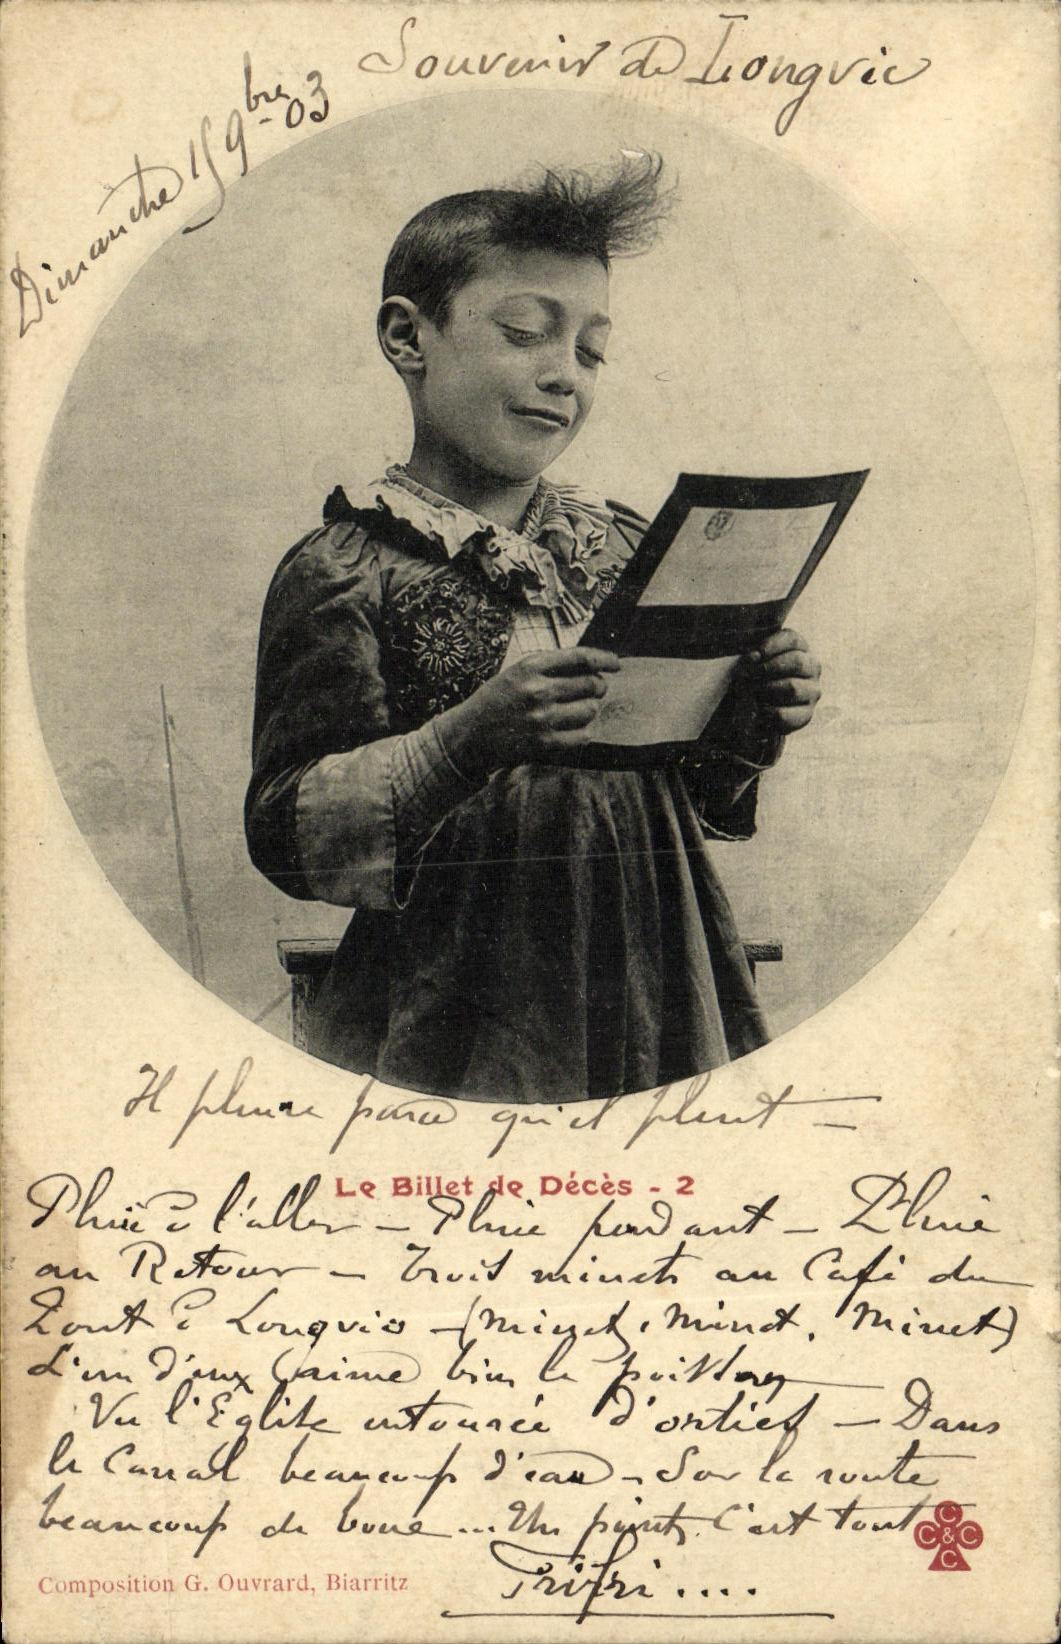 Souvenir de Longvic
Dimanche 15 9bre 03
Il pleure parce qu'il pleut —
Le Billet de Décès - 2
Pluie à l'aller — Pluie pendant — Pluie
au Retour — Trois minets au Café du
Pont à Longvic — (Minet, Minet, Minet)
L'un d'eux aime bien le poisson
Vu l'Eglise entourée d'orties — Dans
le Canal beaucoup d'eau — Sur la route
beaucoup de boue ... Un point, c'est tout
Frifri ....
Composition G. Ouvrard, Biarritz
C
C & C
C